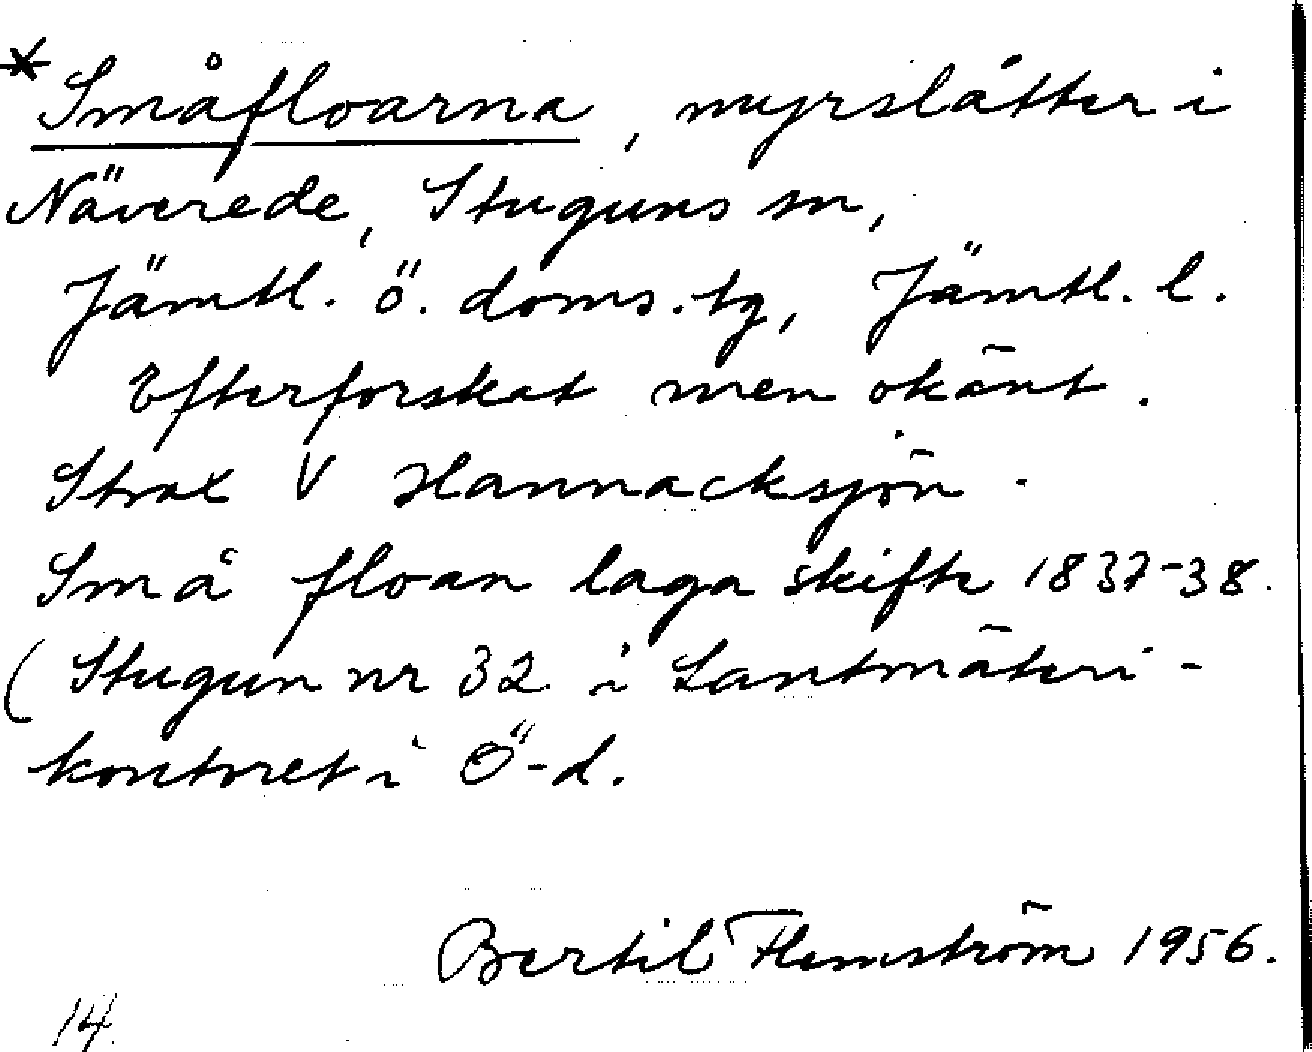 * Småfloarna, myrslåtter i
Näverede, Stuguns sn,
Jämtl. ö. doms.tg, Jämtl. l.
Efterforskat men okänt.
Strax V Hannacksjön.
Små floan laga skifte 1837-38.
(Stugun nr 32 i Lantmäteri-
kontoret i Ö-d.
Bertil Flemström 1956.
14.